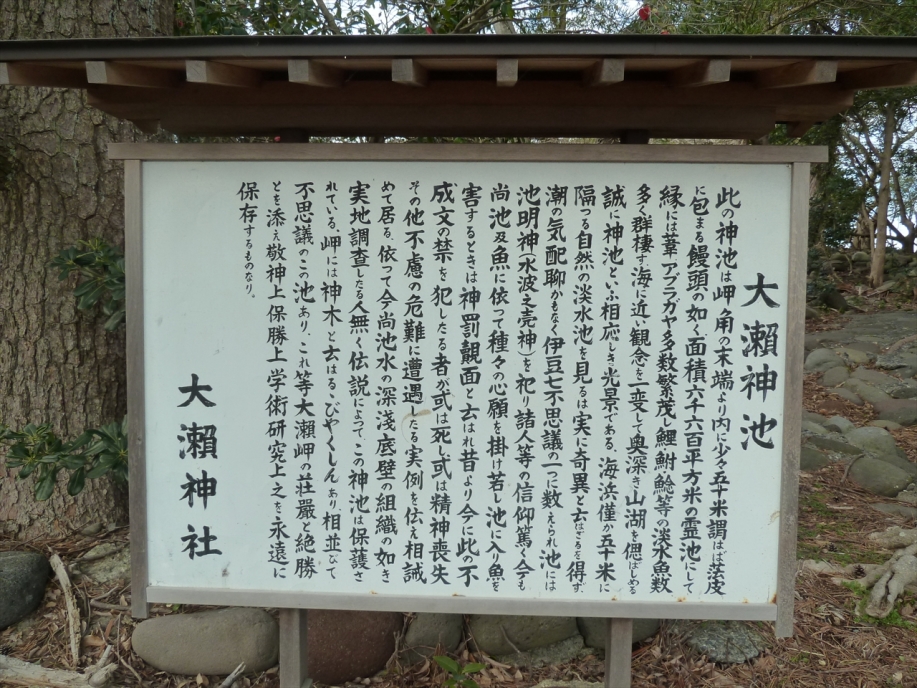 大瀬神池
此の神池は岬角の末端より内に少々五十米謂はば荒皮
に包まる饅頭の如く面積六千六百平方米の霊池にして
縁には葦アブラガヤ多数繁茂し鯉鮒鯰等の淡水魚数
多く群棲す海に近い観念を一変して奥深き山湖を偲ばしめる
誠に神池といふ相応しき光景である海浜僅か五十米に
隔つる自然の淡水池を見るは実に奇異と云はざるを得ず、
潮の気配聊かもなく伊豆七不思議の一に数えられ池には
池明神(水波之売神)を祀り諸人等の信仰篤く今も
尚池及魚に依って種々の心願を掛け若し池に入り魚を
害するときは神罰覿面と云はれ昔より今に此の不
成文の禁を犯したる者が或は死し或は精神喪失
その他不慮の危難に遭遇したる実例を伝え相誡
めて居る、依って今尚池水の深浅底壁の組織の如き
実地調査したる人無く伝説によってこの神池は保護さ
れている、岬には神木と云はるるびやくしんあり、相並びて
不思議のこの池あり、これ等大瀬岬の荘厳と絶勝
とを添え敬神上保勝上学術研究上之を永遠に
保存するものなり。
大瀬神社